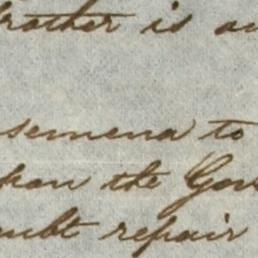 brother is an
semena to
pon the Gov
oubt repair